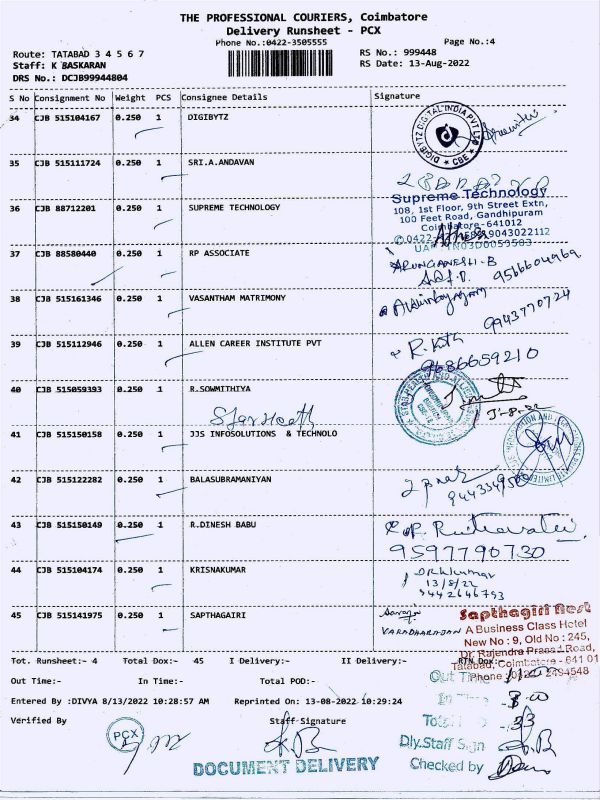 THE PROFESSIONAL COURIERS, Coimbatore
Delivery Runsheet - PCX
Phone No.:0422-3505555
Page No.:4
Route: TATABAD 3 4 5 6 7
RS No.: 999448
Staff: K BASKARAN
RS Date: 13-Aug-2022
DRS No.: DCJB99944804
S No Consignment No Weight PCS Consignee Details Signature
34 CJB 515104167 0.250 1 DIGIBYTZ
DIGIBYTZ DIGITAL INDIA PVT LTD
CBE
35 CJB 515111724 0.250 1 SRI.A.ANDAVAN
36 CJB 88712201 0.250 1 SUPREME TECHNOLOGY
Supreme Technology
108, 1st Floor, 9th Street Extn,
100 Feet Road, Gandhipuram
Coimbatore-641012
37 CJB 88580440 0.250 1 RP ASSOCIATE
ARUNGANESH.B
9566604969
38 CJB 515161346 0.250 1 VASANTHAM MATRIMONY
9943770724
39 CJB 515112946 0.250 1 ALLEN CAREER INSTITUTE PVT
9686659210
40 CJB 515059393 0.250 1 R.SOWMITHIYA
Star Health
41 CJB 515150158 0.250 1 JJS INFOSOLUTIONS & TECHNOLO
42 CJB 515122282 0.250 1 BALASUBRAMANIYAN
43 CJB 515150149 0.250 1 R.DINESH BABU
9597790730
44 CJB 515104174 0.250 1 KRISNAKUMAR
13/8/22
9442646753
45 CJB 515141975 0.250 1 SAPTHAGAIRI
VARADHARAJAN
Sapthagiri Rest
A Business Class Hotel
New No : 9, Old No : 245,
Dr. Rajendra Prasad Road,
Tatabad, Coimbatore - 641 01
Tot. Runsheet:- 4 Total Dox:- 45 I Delivery:- II Delivery:- RTN Dox:-
Out Time:- In Time:- Total POD:-
Out Time
Entered By :DIVYA 8/13/2022 10:28:57 AM Reprinted On: 13-08-2022 10:29:24
In Time
Verified By
Staff Signature
PCX
Total 33
Dly.Staff Sign
DOCUMENT DELIVERY
Checked by